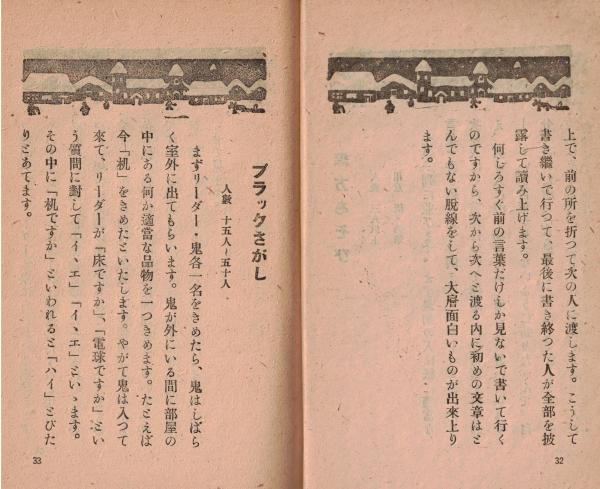 上で、前の所を折つて次の人に渡します。こうして
書き継いで行つて、最後に書き終つた人が全部を披
露して讀み上げます。
何しろすぐ前の言葉だけしか見ないで書いて行く
のですから、次から次へと渡る内に初めの文章はと
んでもない脱線をして、大層面白いものが出來上り
ます。
32
ブラックさがし
人數 十五人～五十人
まずリーダー・鬼各一名をきめたら、鬼はしばら
く室外に出てもらいます。鬼が外にいる間に部屋の
中にある何か適當な品物を一つきめます。たとえば
今「机」をきめたといたします。やがて鬼は入つて
來て、リーダーが「床ですか」、「電球ですか」とい
う質問に對して「イヽエ」「イヽエ」といゝます。
その中に「机ですか」といわれると「ハイ」とぴた
りとあてます。
33